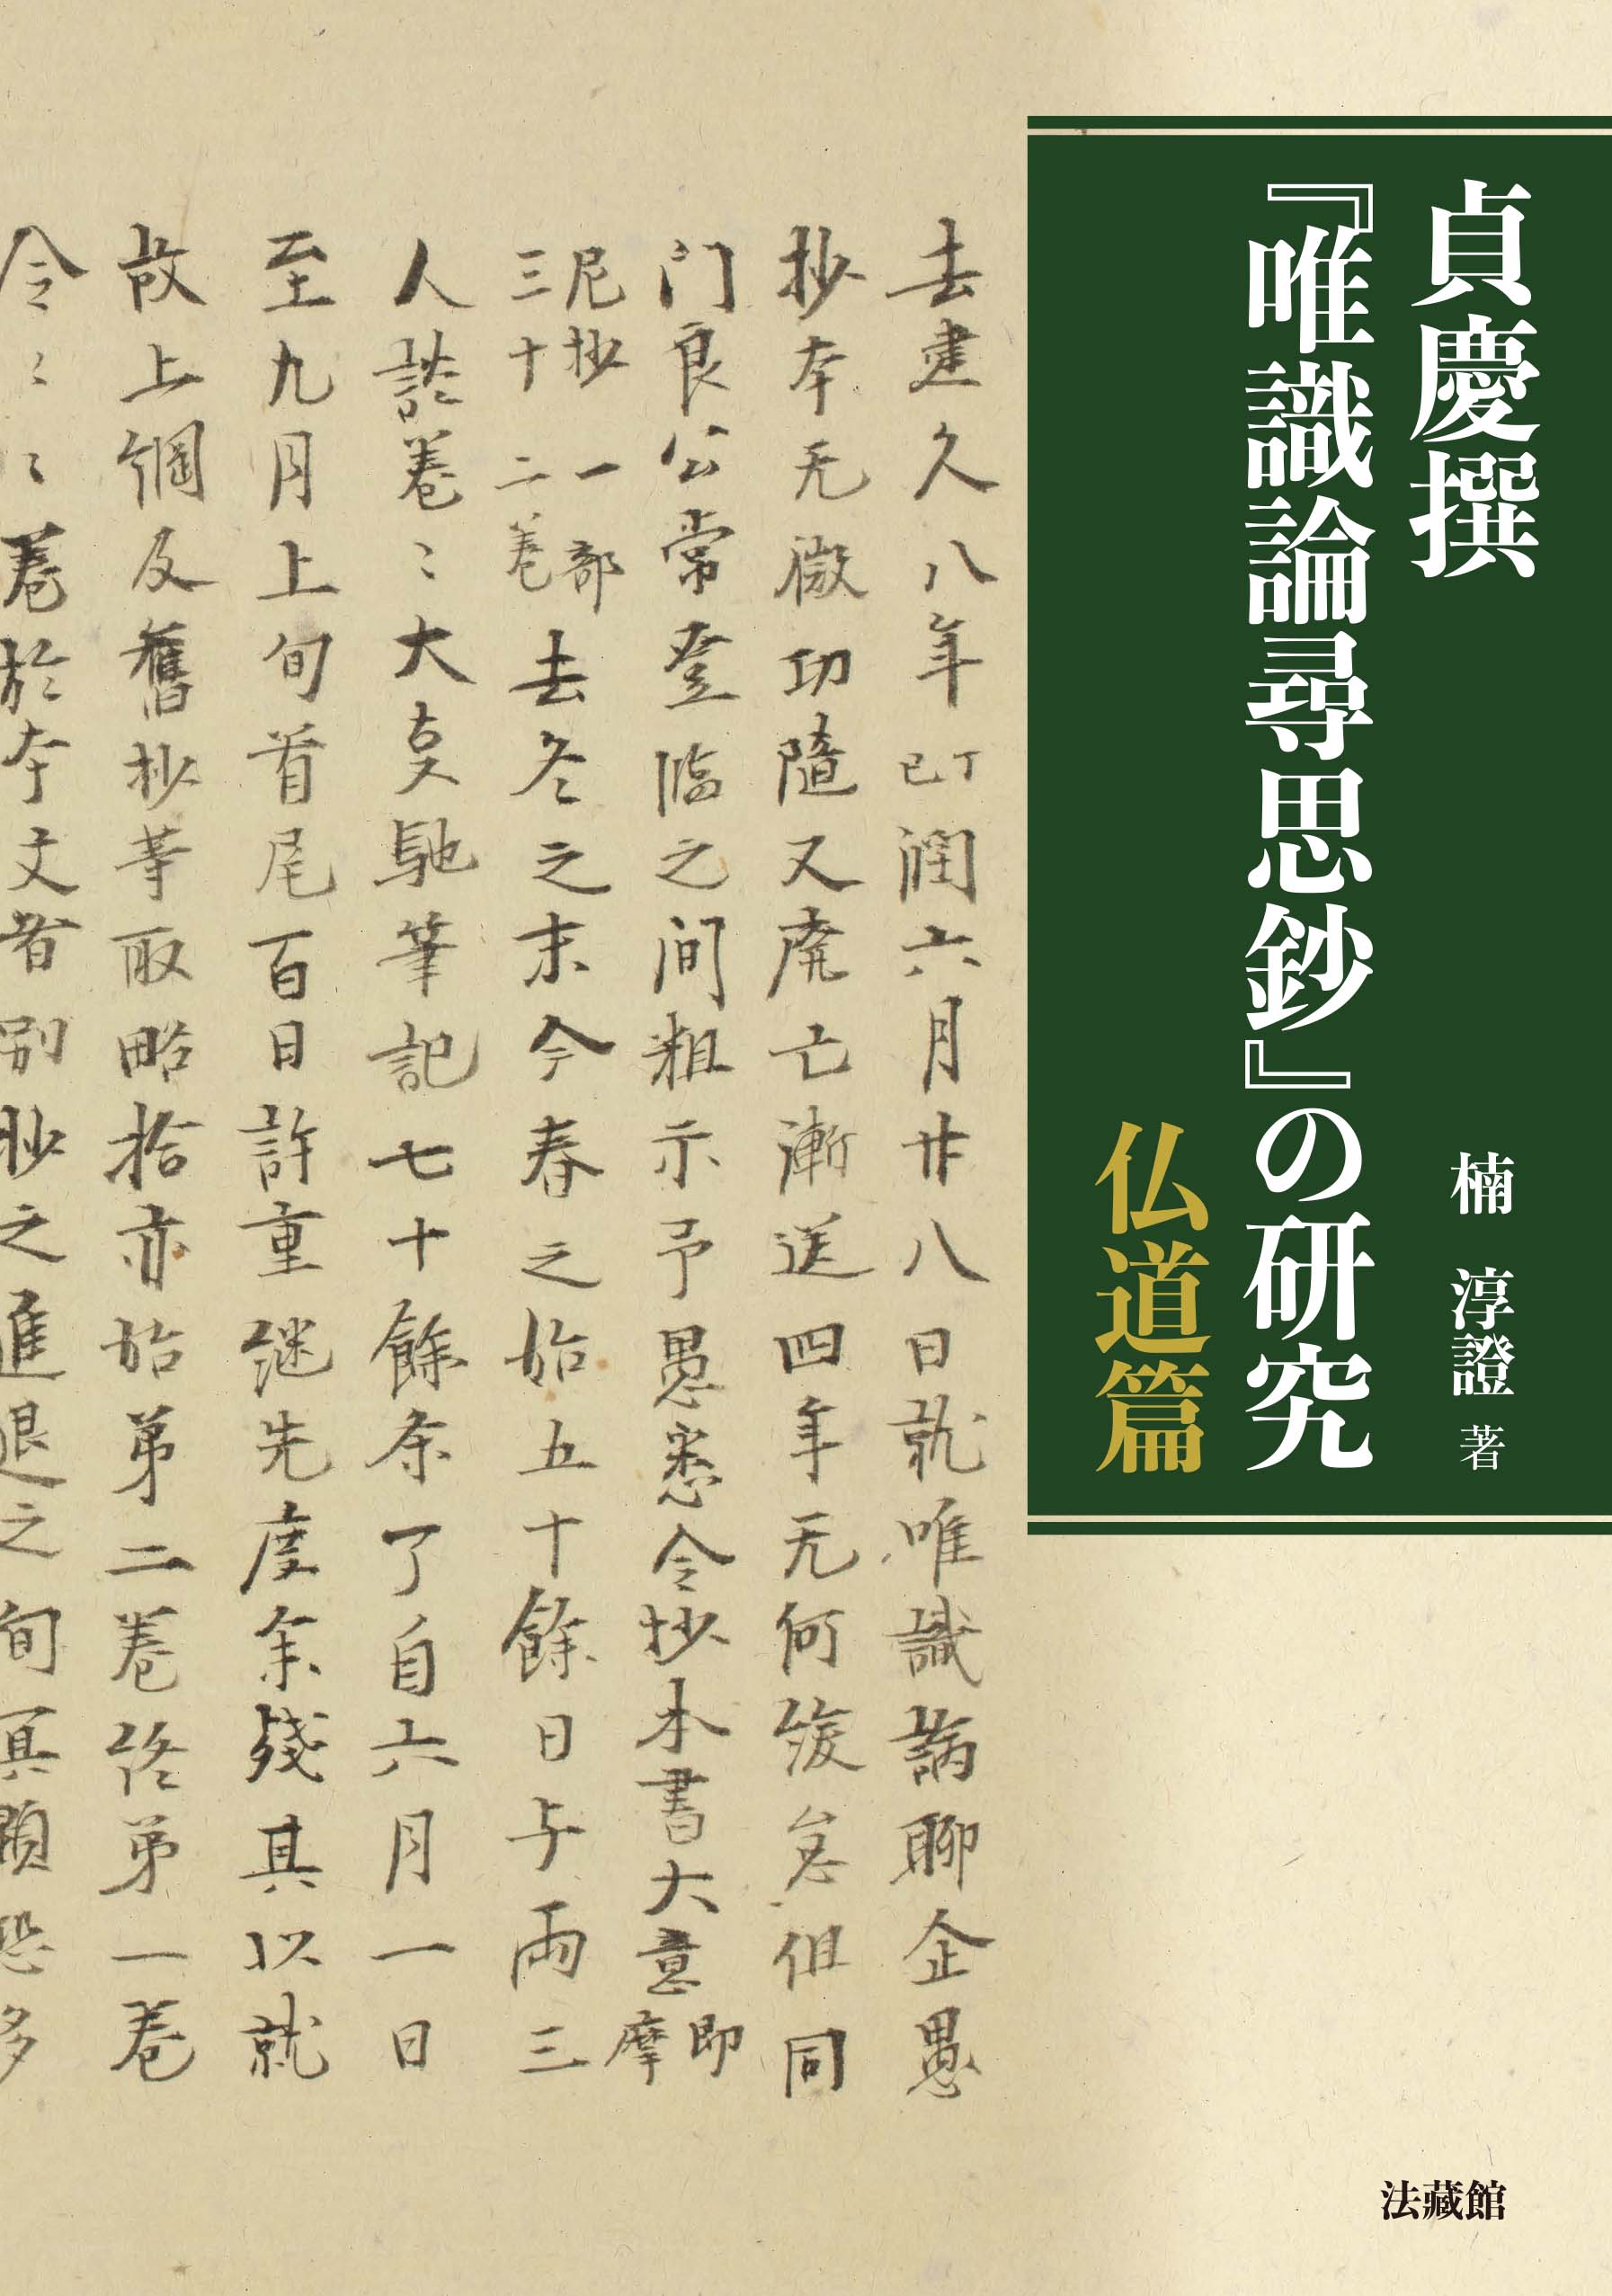 貞慶撰
『唯識論尋思鈔』の研究
仏道篇
楠 淳證 著
法藏館
去建久八年丁巳潤六月廿八日就唯識論聊企愚
抄本无微功隨又廃亡漸送四年无何緩怠但同
门良公常登臨之间粗示予愚悉令抄本書大意即摩
尼抄一部三十二巻去冬之末今春之始五十餘日与両三
人談巻〻大㚑馳筆記七十餘条了自六月一日
至九月上旬首尾百日許重継先度余残其以就
故上綱反舊抄等取略拾亦始第二巻終第一巻
令〻〻巻於本文者別抄之進退之旬冥顕恐多